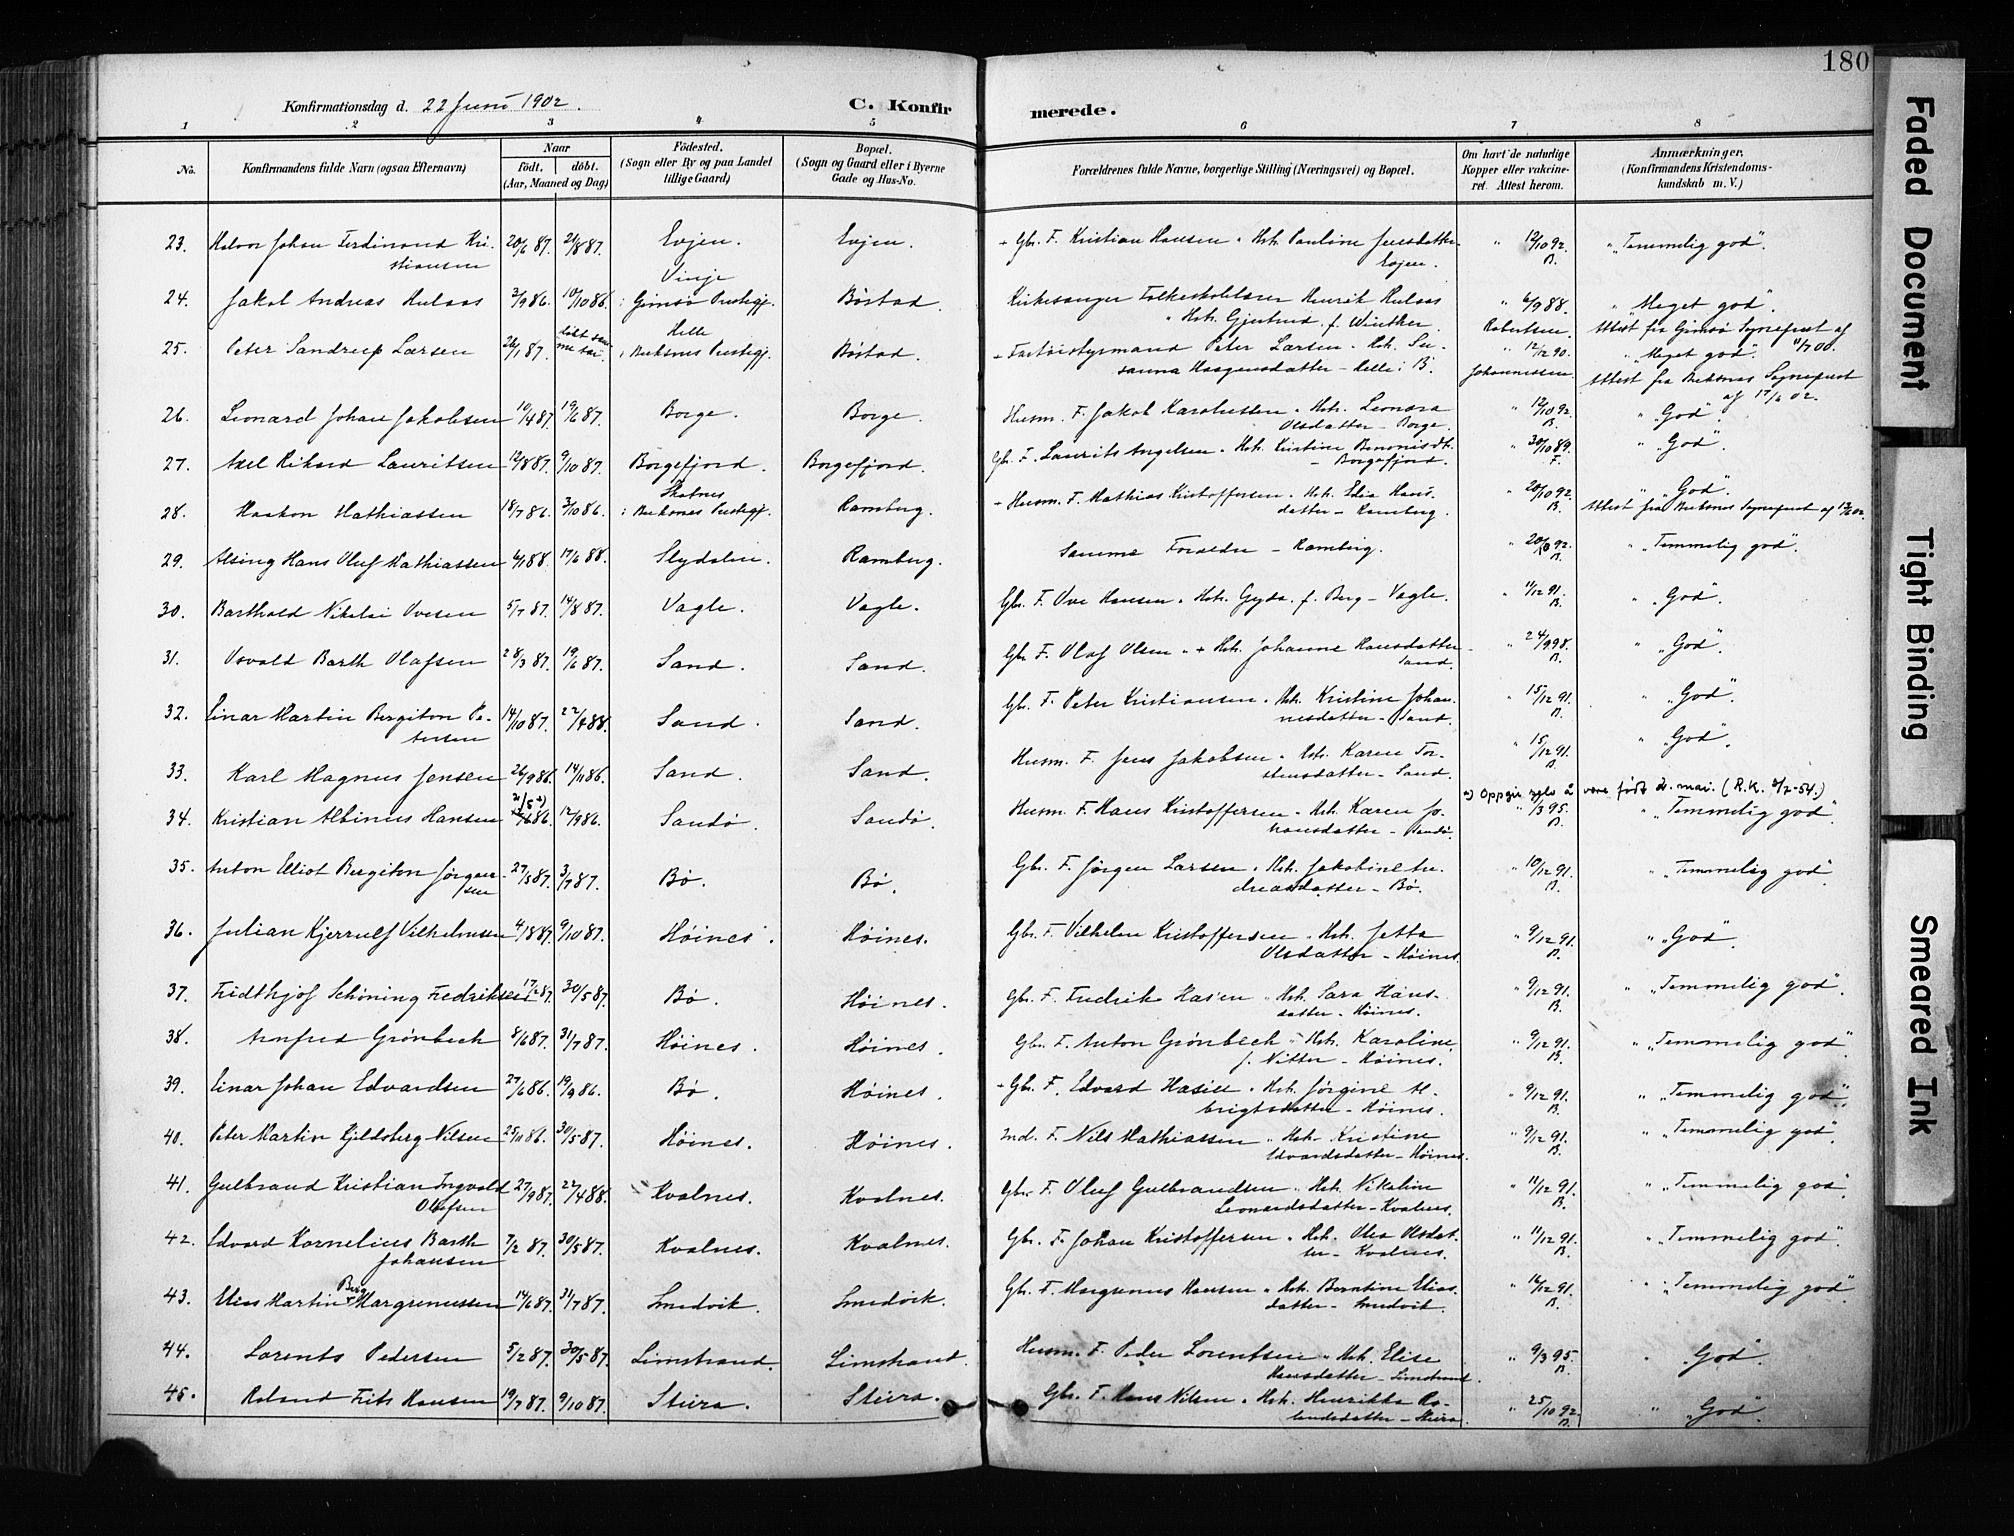 180
Konfirmationsdag d. 22 Juni 1902.
C. Konfirmerede.
1 2 3 4 5 6 7 8
No.
Konfirmandens fulde Navn (ogsaa Efternavn)
Naar
födt. döbt.
(Aar, Maaned og Dag)
Födested.
(Sogn eller By og paa Landet
tillige Gaard)
Bopæl.
(Sogn og Gaard eller i Byerne
Gade og Hus-No.
Forældrenes fulde Navne, borgerlige Stilling (Næringsvei) og Bopæl.
Om havt de naturlige
Kopper eller vakcine-
ret. Attest herom.
Anmærkninger,
(Konfirmandens Kristendoms-
kundskab m. V.)
23. Halvor Johan Ferdinand Kri- 20/6 87. 21/8 87. Evjen. Evjen. Gbr. F. Kristian Hansen " Hst. Pauline Jensdatter " 12/10 92. " "Temmelig god".
stiansen Evjen. B.
Vinje
24. Jakob Andreas Hulaas 3/9 86. 10/10 86. i Gimsø Prestegj. Bøstad. Kirkesanger Folkeskolelærer Henrik Hulaas " 6/9 88. " "Meget god".
" Hst. Gjertrud f. Winther. Robertsen. Attest fra Gimsø Sogneprest af 11/7 00.
Helle
25. Peter Sandrup Larsen 26/1 87. i Buksnes Prestegj. Bøstad. Larsen " Hst. Su- " 12/12 90. " "Meget god".
sanna Haagensdatter - Helle i B. Johannessen. Attest fra Buksnes Sogneprest
af 17/6 02.
26. Leonard Johan Jakobsen 10/4 87. 19/6 87. Borge. Borge. Husm. F. Jakob Karolussen " Hst. Leonora " 12/10 92. " "God".
Olsdatter - Borge. B.
27. Axel Rikard Lauritsen 12/8 87. 9/10 87. Borgefjord. Borgefjord. Gbr. F. Laurits Angelsen " Hst. Kristine Benonisdt. " 30/10 89. " "God".
- Borgefjord. F.
28. Haakon Mathiassen 18/7 86. 3/10 86. i Buksnes Prestegj. Ramberg. Husm. F. Mathias Kristoffersen " Hst. Edia Hans- " 20/10 92. " "God".
datter - Ramberg. B. Attest fra Buksnes Sogneprest af 12/6 02.
29. Alsing Hans Oluf Mathiassen 4/1 88. 17/6 88. Slydalen. Ramberg. Samme Forældre - Ramberg. " 20/10 92. " "Temmelig god".
B.
30. Barthold Nikolai Ovesen 5/7 87. 14/8 87. Vagle. Vagle. Gbr. F. Ove Hansen " Hst. Gyda f. Berg - Vagle. " 11/12 91. " "God".
B.
31. Osvald Barth Olafsen 28/3 87. 19/6 87. Sand. Sand. Gbr. F. Olaf Olsen " + Hst. Johanne Hansdatter " 24/9 98. " "God".
Sand. B.
32. Einar Martin Bergiton Pe- 14/10 87. 22/4 88. Sand. Sand. Gbr. F. Peter Kristiansen " Hst. Kristine Johan- " 15/12 91. " "God".
tersen nesdatter - Sand. B.
33. Karl Magnus Jensen 26/9 86. 14/11 86. Sand. Sand. Husm. F. Jens Jakobsen " Hst. Karen Tor- " 15/12 91. " "God".
stensdatter - Sand. B.
x) Oppgir selv å være født 21. mai. (R.K. 4/2-54.)
34. Kristian Albinus Hansen 21/5 x) 86. 12/9 86. Sandø. Sandø. Husm. F. Hans Kristoffersen " Hst. Karen Jo- " 1/3 95. " "Temmelig god".
hansdatter - Sandø. B.
35. Anton Elliot Bergiton Jørgen- 27/5 87. 3/7 87. Bø. Bø. Gbr. F. Jørgen Larsen " Hst. Jakobine An- " 10/12 91. " "Temmelig god".
sen dreasdatter - Bø. B.
36. Julian Kjerrulf Vilhelmsen 4/8 87. 9/10 87. Høines. Høines. Gbr. F. Vilhelm Kristoffersen " Hst. Jetta " 9/12 91. " "God".
Olsdatter - Høines. B.
37. Fridthjof Schøning Fredriksen 17/2 87. 30/5 87. Bø. Høines. Gbr. F. Fredrik Hansen " Hst. Sara Hans- " 9/12 91. " "Temmelig god".
datter - Høines. B.
38. Arnfred Grønbech 8/6 87. 31/7 87. Høines. Høines. Gbr. F. Anton Grønbech " Hst. Karoline " 9/12 91. " "Temmelig god".
f. Nitter - Høines. B.
39. Einar Johan Edvardsen 27/6 86. 19/9 86. Bø. Høines. Gbr. F. Edvard Hasill " Hst. Jørgine Al- " 9/12 91. " "Temmelig god".
brigtsdatter - Høines. B.
40. Peter Martin Kjeldsberg Nilsen 25/11 86. 30/5 87. Høines. Høines. Ind. F. Nils Mathiassen " Hst. Kristine " 9/12 91. " "Temmelig god".
Edvardsdatter - Høines. B.
41. Gulbrand Kristian Ingvald 27/9 87. 27/4 88. Kvalnes. Kvalnes. Gbr. F. Oluf Gulbrandsen " Hst. Nikoline " 11/12 91. " "Temmelig god".
Olufsen Leonardsdatter - Kvalnes. B.
42. Edvard Kornelius Barth 7/2 87. 30/5 87. Kvalnes. Kvalnes. Gbr. F. Johan Kristoffersen " Hst. Olea Olsdat- " 11/12 91. " "Temmelig god".
Johansen ter - Kvalnes. B.
43. Elias Martin Berg Margrenussen 14/6 87. 31/7 87. Smedvik. Smedvik. Gbr. F. Margrenus Hansen " Hst. Berntine Elias- " 16/12 91. " "Temmelig god".
datter - Smedvik. B.
44. Lorents Pedersen 5/2 87. 30/5 87. Limstrand. Limstrand. Husm. F. Peder Lorentsen " Hst. Elise " 9/3 95. " "God".
Hansdatter - Limstrand. B.
45. Roland Frits Hansen 19/7 87. 9/10 87. Steira. Steira. Gbr. F. Hans Nilsen " Hst. Henrikka Ro- " 25/10 92. " "God".
landsdatter - Steira. B.
Faded Document
Tight Binding
Smeared Ink